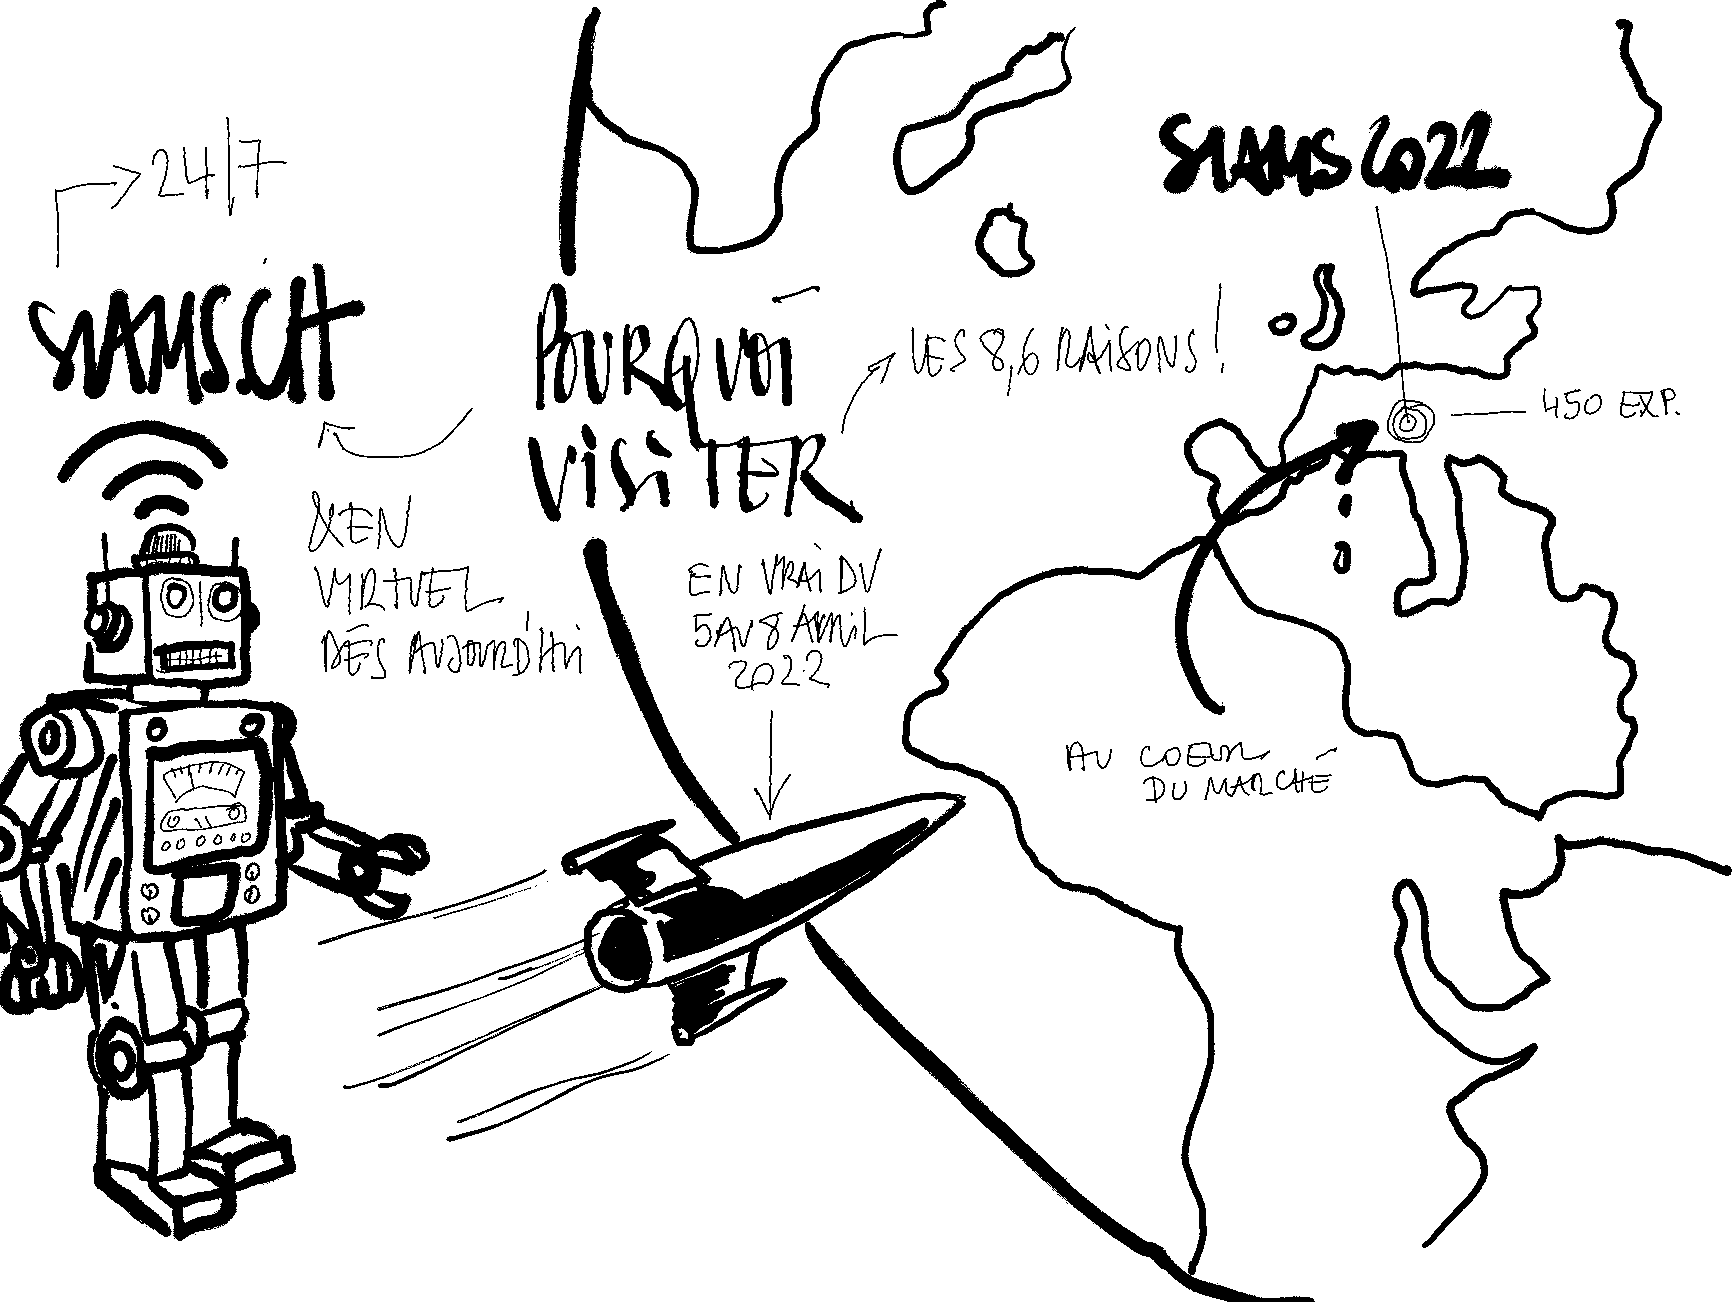 24/7
SIAMS.CH
& EN
VIRTUEL
DÈS AUJOURD'HUI
POURQUOI
VISITER
LES 8,6 RAISONS !
EN VRAI DU
5 AU 8 AVRIL
2022
SIAMS 2022
450 EXP.
AU COEUR
DU MARCHÉ